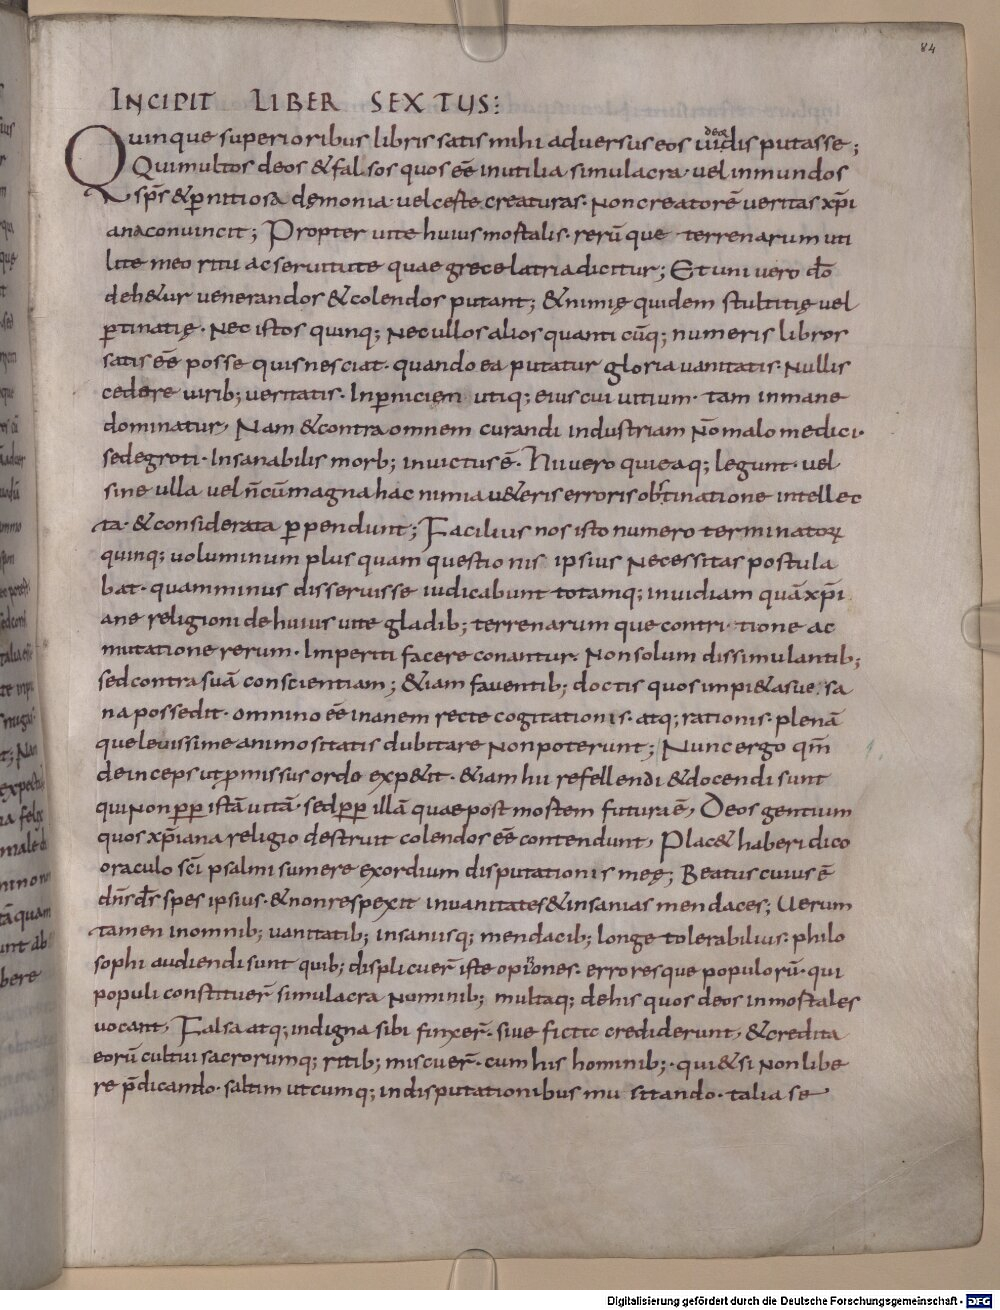 84
INCIPIT LIBER SEXTUS:
Quinque superioribus libris satis mihi adversus eos uideor disputasse;
Qui multos deos & falsos quos eē inutilia simulacra · uel inmundos
sp̄s & p̱nitiosa dęmonia · uel certe creaturas · Non creatorē ueritas xp̄i
ana conuincit; Propter uite huius mortalis · rerū que terrenarum uti
lite meo ritu ac seruitute quae grece latria dicitur; Et uni uero dō
deb&ur uenerandos & colendos putant; & nimię quidem stultitię uel
p̱tinatię · Nec istos quinq; Nec ullos alios quanti cūq; numeris libros
satis eē posse quis nesciat · quando ea putatur gloria uanitatis · Nullis
cedere uirib; ueritatis · In p̱niciem utiq; eius cui uitium · tam inmane
dominatur, Nam & contra omnem curandi industriam Nō malo medici ·
sed egroti · Insanabilis morb; inuictus ē · Hi uero qui eaq; legunt · uel
sine ulla uel n̄ cū magna hac nimia u&eris erroris obstinatione intellec
ta · & considerata p̱pendunt; Facilius nos isto numero terminatoꝝ
quinq; uoluminum plus quam questionis ipsius Necessitas postula
bat · quam minus disseruisse iudicabunt totamq; inuidiam quā xp̄i
ane religioni de huius uite gladib; terrenarum que contritione ac
mutatione rerum · Imperiti facere conantur · Non solum dissimulantib;
sed contra suā conscientiam; &iam fauentib; doctis quos impi&as ue · sa
na possedit · omnino eē inanem recte cogitationis · atq; rationis · plenā
que leuissime animositatis dubitare Non poterunt; Nunc ergo qm̄
deinceps ut p̄missus ordo exp&it · &iam hii refellendi & docendi sunt
qui Non pp̱ istā uitā · sed pp̱ illā quae post mortem futura ē, Deos gentium
quos xp̄iana religio destruit colendos eē contendunt, Plac& haberi dico
oraculo sc̄i psalmi sumere exordium disputationis meę; Beatus cuius ē
dn̄s ds̄ spes ipsius · & non respexit in uanitates & insanias mendaces; Uerum
tamen in omnib; uanitatib; insaniisq; mendacib; longe tolerabilius · philo
sophi audiendi sunt quib; displicuer̄ iste opiniones · erroresque populorū · qui
populi constituer̄ simulacra Numinib; multaq; de his quos deos inmortales
uocant, Falsa atq; indigna sibi finxer̄ · siue ficta crediderunt, & credita
eorū cultui sacrorumq; ritib; miscuer̄ · cum his hominib; · qui &si Non libe
re p̄dicando · saltim utcumq; in disputationibus mu sitando · talia se
Digitalisierung gefördert durch die Deutsche Forschungsgemeinschaft - DFG